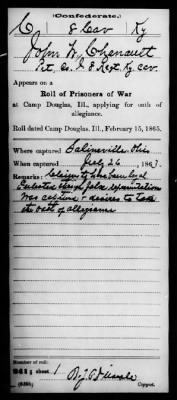 (Confederate.)
C 8 Cav Ky
John W. Chenault
Pvt, Co. I, 8 Regt. Ky Cav.
Appears on a
Roll of Prisoners of War
at Camp Douglas, Ill., applying for oath of
allegiance.
Roll dated Camp Douglas, Ill., February 15, 1865.
Where captured Salineville, Ohio
When captured July 26, 1863.
Remarks: Claims to have been
through false representations
Was captured & desires to take
the oath of allegiance
Number of roll:
sheet 1
Copyist.